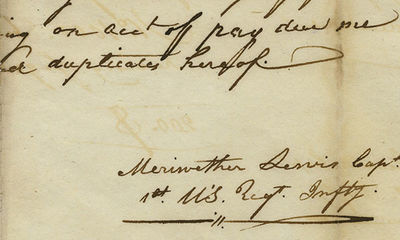 ing on acct. of pay due me
duplicates hereof.
Meriwether Lewis Capt.
1st. U'S. Regt. Infty.